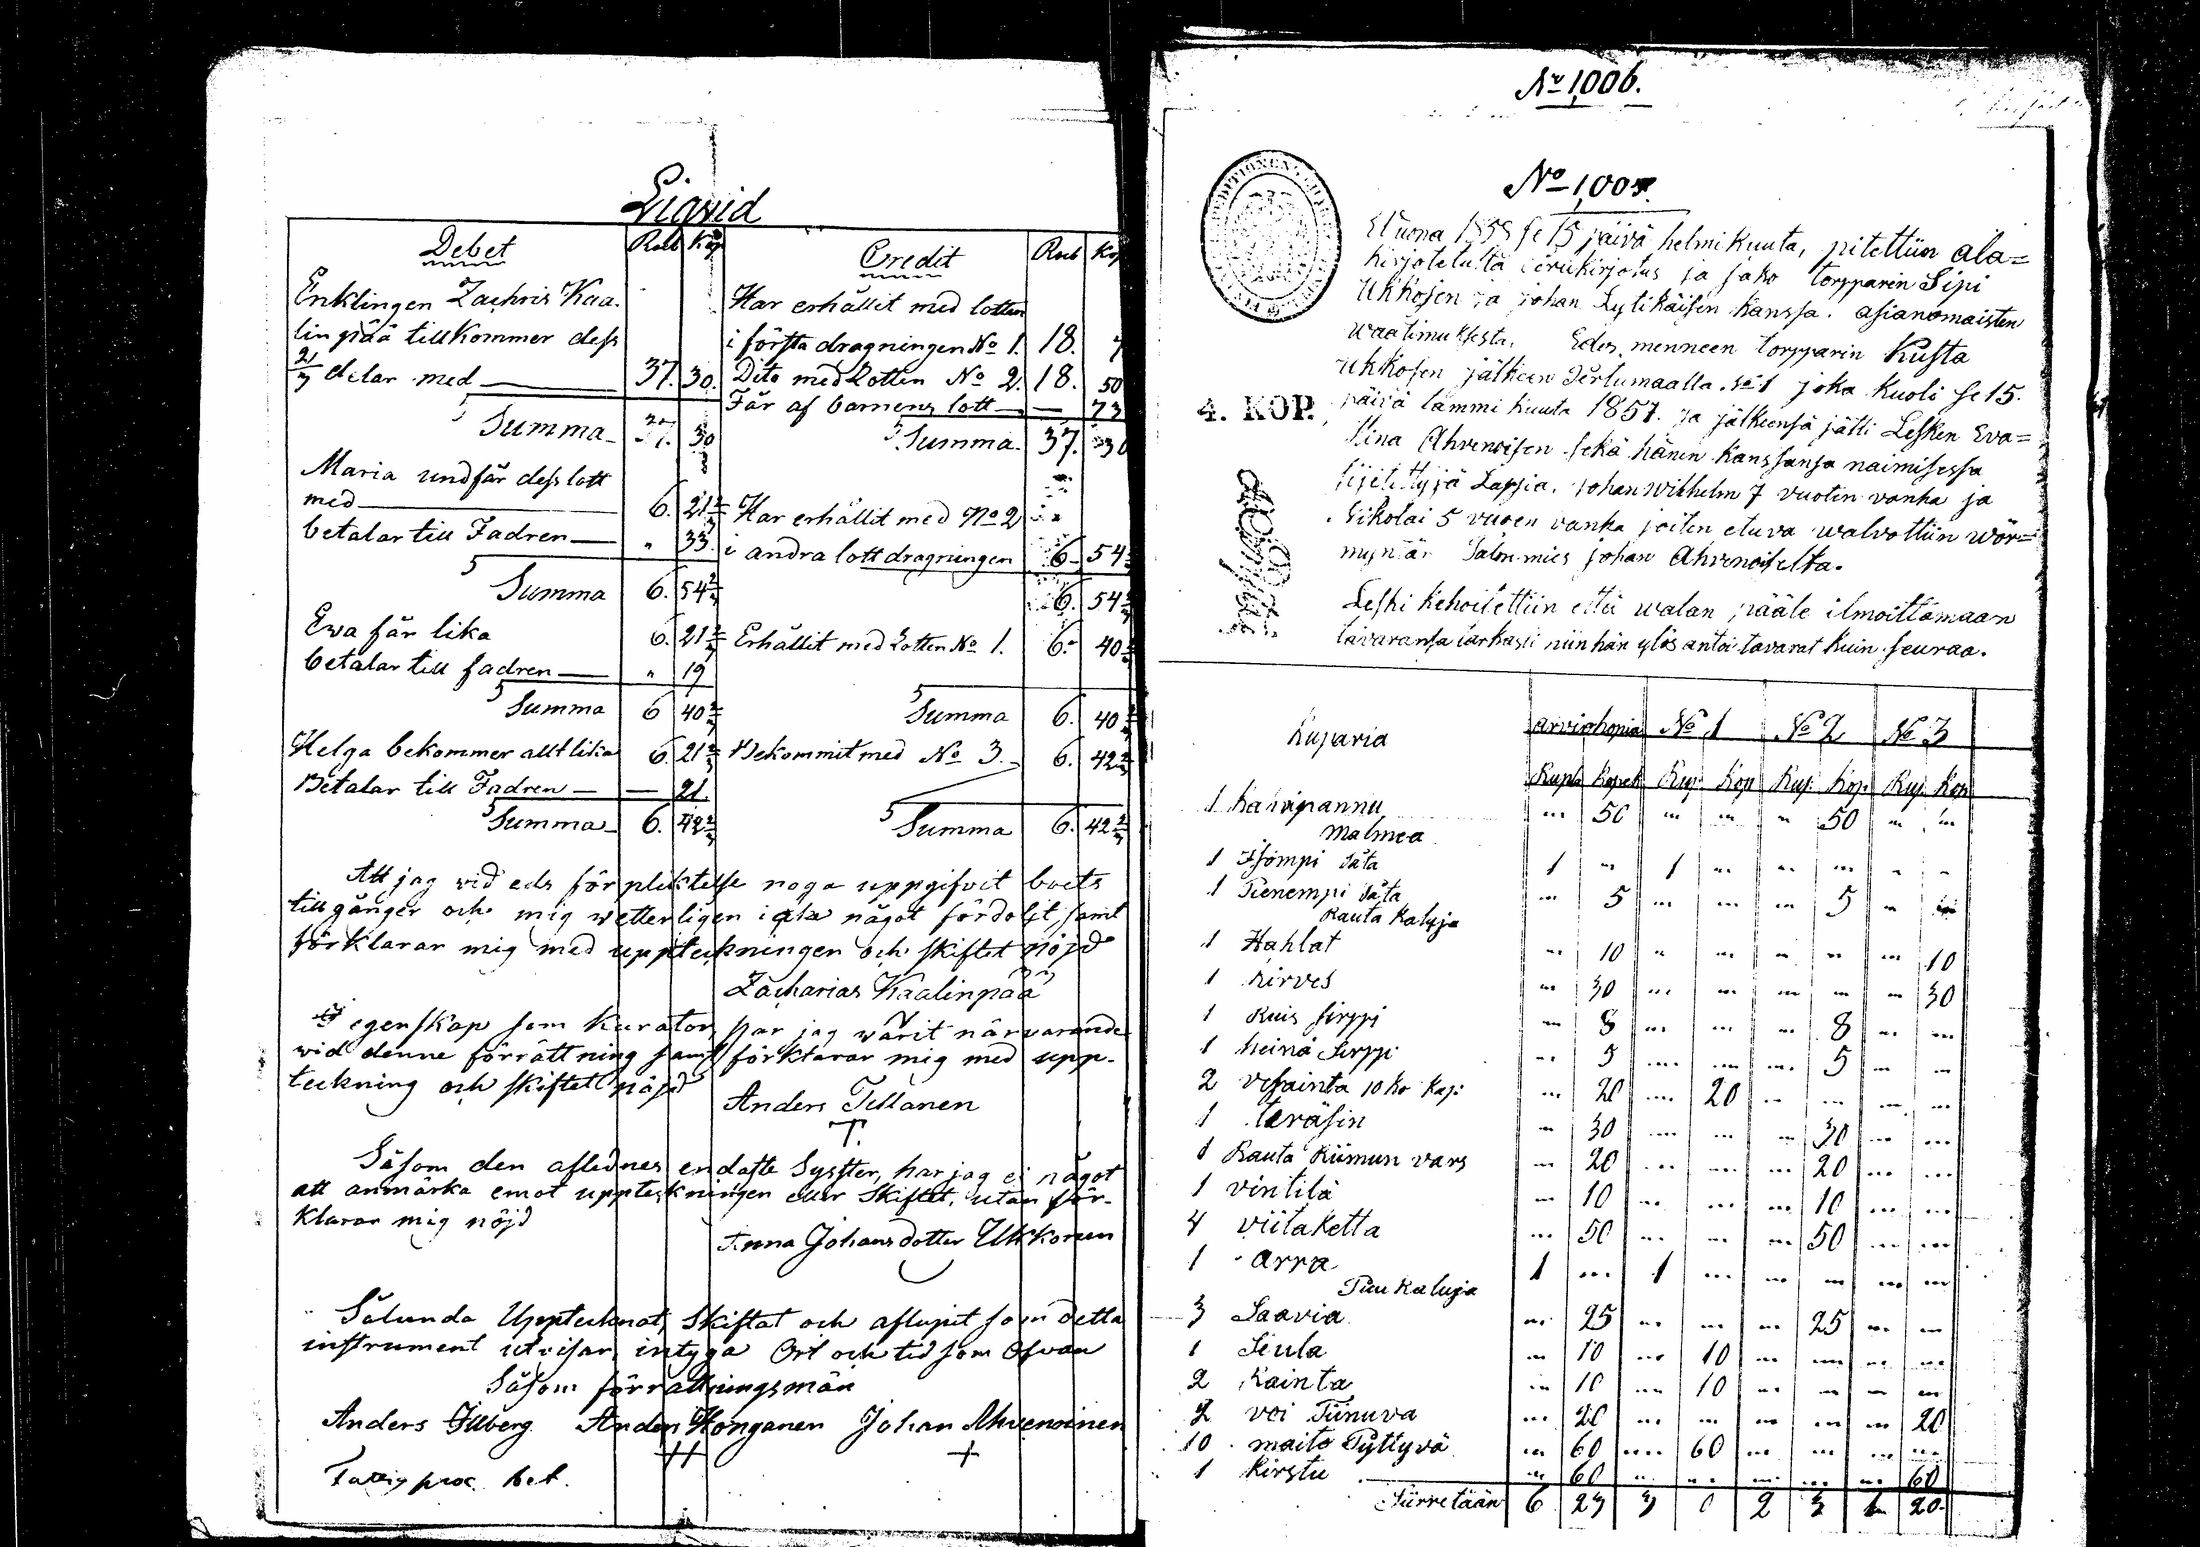 Liqvid
Debet Rub Kop Credit Rub Kop
Enklingen Zachris Kaa- Har erhållit med lotten
linpää tillkommer dess i första dragningen No 1. 18. 7
2/3 delar med 37. 30. Dito med Lotten No 2. 18. 50
Får af barnens lott — 73
Summa 37. 30 Summa 37. 30
Maria undfår dess lott
med 6. 21 2/3 Har erhållit med No 2
betalar till Fadren " 33. i andra lottdragningen 6 54 2/3
Summa 6. 54 2/3 6. 54 2/3
Ewa får lika 6. 21 2/3 Erhållit med Lotten No 1. 6. 40 2/3
betalar till fadren " 19
Summa 6 40 2/3 Summa 6. 40 2/3
Helga bekommer allt lika 6. 21 2/3 Bekommit med No 3. 6. 42 2/3
Betalar till Fadren — 21.
Summa 6. 42 2/3 Summa 6. 42 2/3
Att jag vid eds förpliktelse noga uppgifvit boets
tillgånger och mig wetterligen icke något fördolt, samt
förklarar mig med uppteckningen och skiftet nöjd
Zacharias Kaalinpää
I egenskap som Kurator har jag warit närvarande
vid denne förrättning samt förklarar mig med upp-
teckning och skiftet nöjd
Anders Tillanen
T.
Såsom den aflednes endaste Syster, har jag ej något
att anmärka emot uppteckningen eller Skiftet, utan för-
klarar mig nöjd
Anna Johansdotter Ukkonen
Sålunda Upptecknat, Skiftat och aflupit som detta
instrument utvisar, intyga Ort och tid som ofvan
Såsom förrättningsmän
Anders Illberg Anders Honganen Johan Ahvenoinen
Fattig proc. bet.
No 1006.
No 1005.
Wuona 1858 se 15 päivä helmikuuta, pitettiin ala=
kirjotetulta perukirjotus ja jako torpparin Sipi
Ukkosen ja Johan Lytikäisen kanssa. asianomaisten
waatimuksesta, Edes menneen torpparin Kusta
Ukkosen jälkeen No 1 joka kuoli se 15.
päivä tammi kuuta 1857. ja jälkeensä jätti Lesken Eva=
Stina Ahvenoisen sekä hänen kanssansa naimisessa
sijitettyjä Lapsia. Johan Wilhelm 7 vuotin vanha ja
Nikolai 5 vuoen vanha joiten etuva walvottiin wör=
myntär Talon mies Johan Ahvenoiselta.
4. KOP.
Leski kehoitettiin että walan pääle ilmoittamaan
tavaransa tarkasti niin hän ylös antoi tavarat kuin seuraa.
Kuparia arviohopia No 1 No 2 No 3
Rupla Kopek Rup. Kop Rup. Kop. Rup. Kop
1 Kahvipannu 50 50
Malmea
1 Isompi Pata 1 1
1 Pienempi Pata 5 5
Rauta Kaluja
1 Hahlat 10 10
1 Kirves 30 30
1 Ruis sirppi 8 8
1 Heinä Sirppi 5 5
2 vesainta 10 ko kap: 20 20
1 teräsin 30 30
1 Rauta Kiimun vars 20 20
1 vintilä 10 10
4 viitaketta 50 50
1 arra 1 1
Puu Kaluja
3 Saavia 25 25
1 Seula 10 10
2 Kainta 10 10
2 voi Tiinuva 20 20
10 maito Pyttyvä 60 60
1 Kirstu 60 60
Siirretään 6 23 3 0 2 3 1 20.